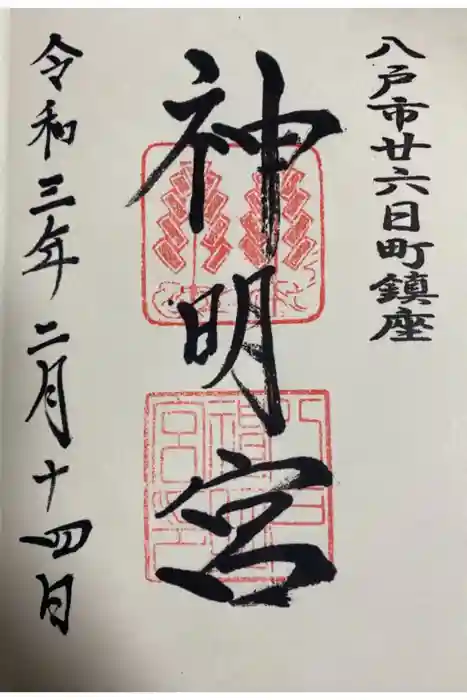 八戸市廿六日町鎮座
神明宮
令和三年二月十四日